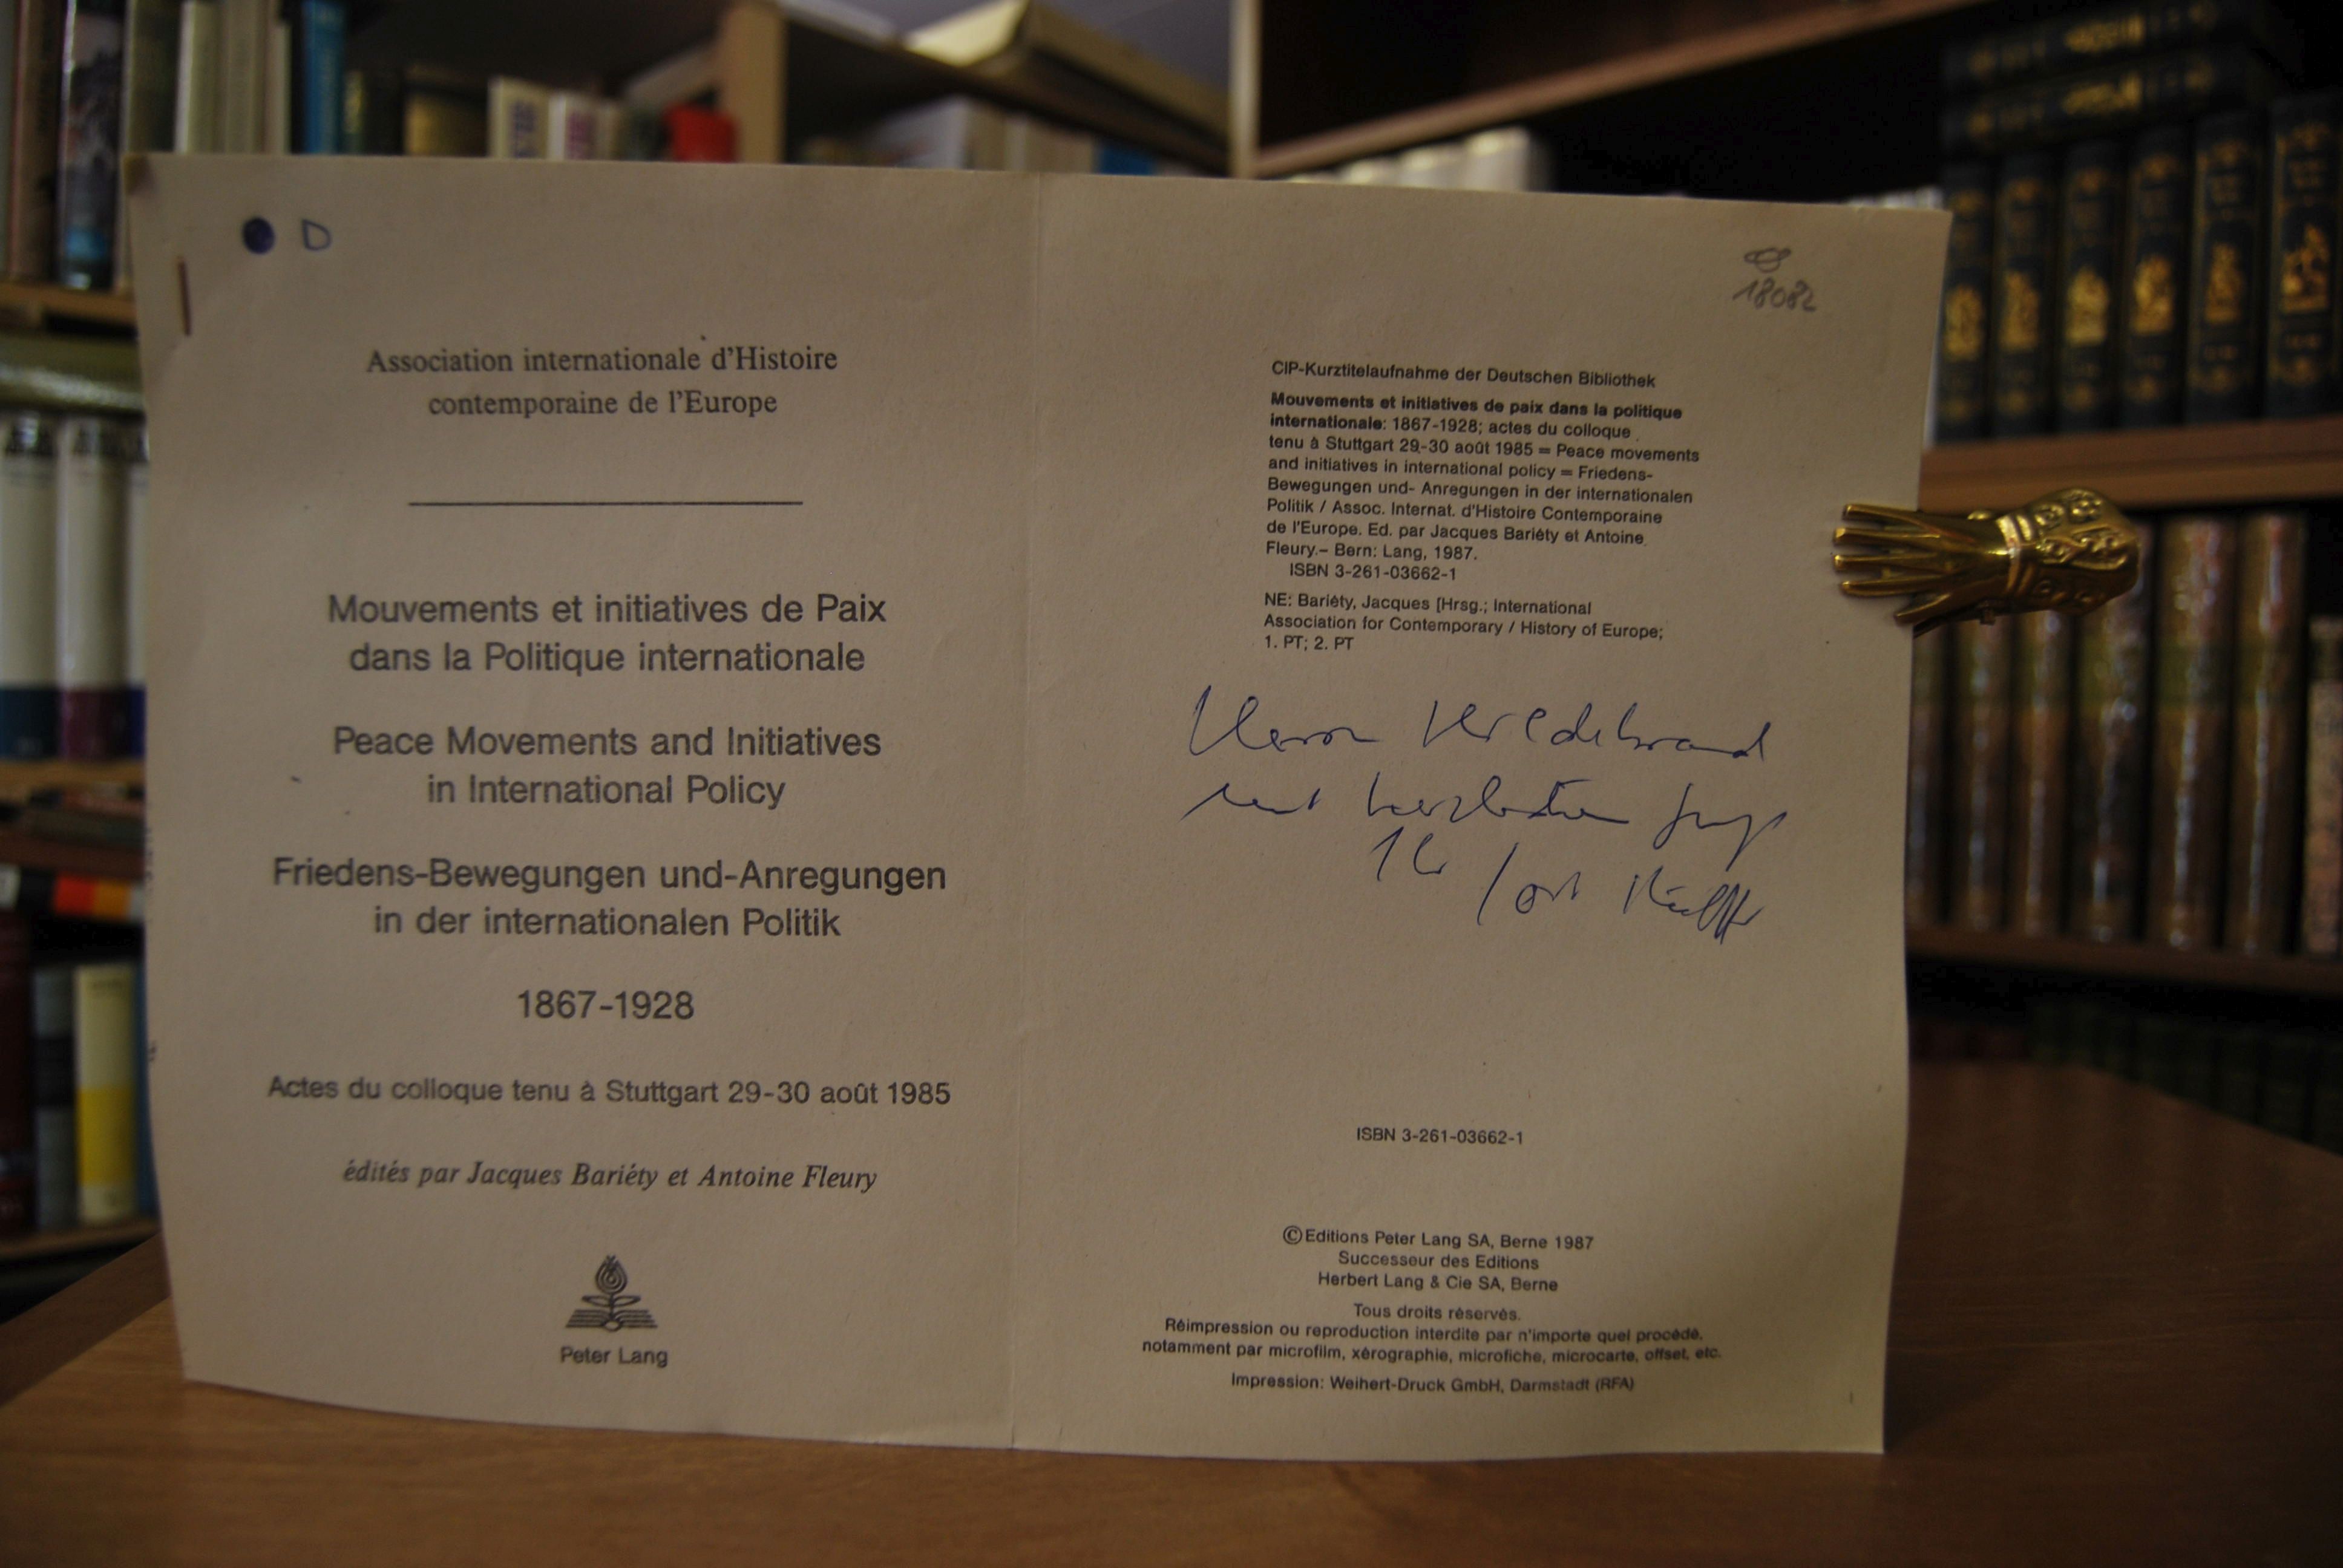 D
Association internationale d'Histoire
contemporaine de l'Europe
Mouvements et initiatives de Paix
dans la Politique internationale
Peace Movements and Initiatives
in International Policy
Friedens-Bewegungen und-Anregungen
in der internationalen Politik
1867-1928
Actes du colloque tenu à Stuttgart 29-30 août 1985
édités par Jacques Bariéty et Antoine Fleury
Peter Lang
18082
CIP-Kurztitelaufnahme der Deutschen Bibliothek
Mouvements et initiatives de paix dans la politique
internationale: 1867-1928; actes du colloque
tenu à Stuttgart 29-30 août 1985 = Peace movements
and initiatives in international policy = Friedens-
Bewegungen und- Anregungen in der internationalen
Politik / Assoc. Internat. d'Histoire Contemporaine
de l'Europe. Ed. par Jacques Bariéty et Antoine
Fleury.– Bern: Lang, 1987.
ISBN 3-261-03662-1
NE: Bariéty, Jacques [Hrsg.; International
Association for Contemporary / History of Europe;
1. PT; 2. PT
Herrn Hildebrand
mit herzlichem Gruß
Ihr
ISBN 3-261-03662-1
©Editions Peter Lang SA, Berne 1987
Successeur des Editions
Herbert Lang & Cie SA, Berne
Tous droits réservés.
Réimpression ou reproduction interdite par n'importe quel procédé,
notamment par microfilm, xérographie, microfiche, microcarte, offset, etc.
Impression: Weihert-Druck GmbH, Darmstadt (RFA)